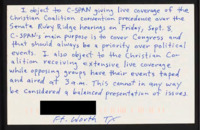 I object to C-SPAN giving live coverage of the
Christian Coalition convention precedence over the
Senate Ruby Ridge hearings on Friday, Sept. 8
C-SPAN's main purpose is to cover Congress and
that should always be a priority over political
events. I also object to the Christian Co-
alition receiving extensive live coverage
while opposing groups have their events taped
and aired at 3 a.m. This cannot in any way
be considered a balanced presentation of issues.
Ft. Worth TX